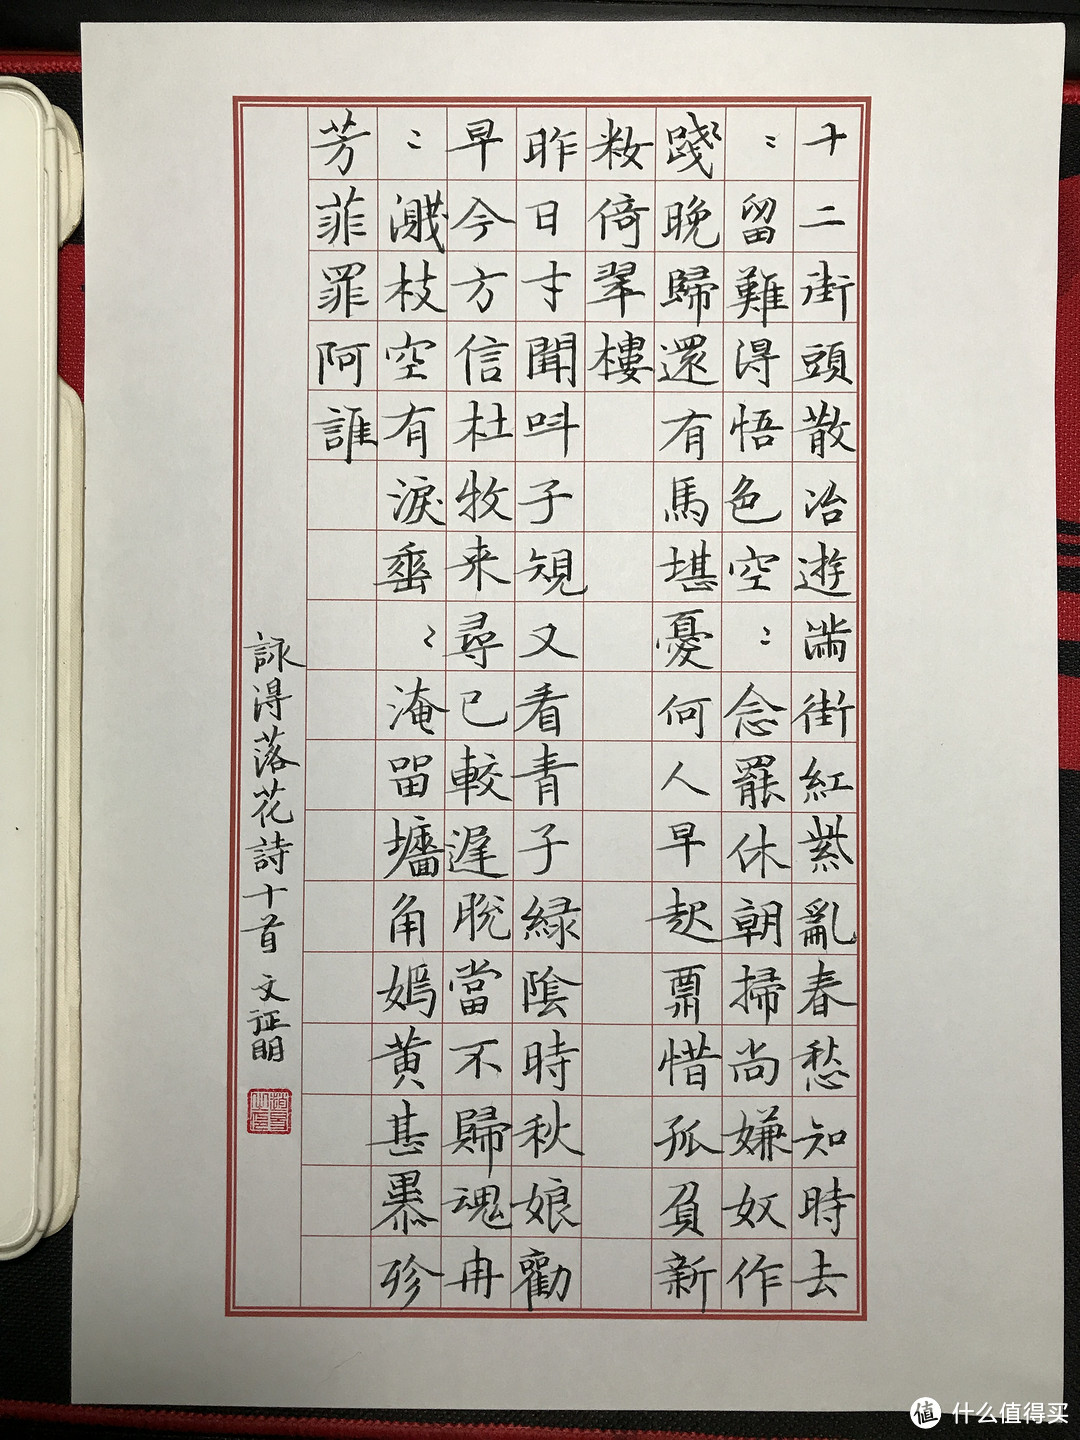 十二街頭散冶遊滿街紅紫亂春愁知時去
〻留難得悟色空〻念罷休朝掃尚嫌奴作
踐晚歸還有馬堪憂何人早起鬻惜孤負新
妝倚翠樓
昨日才聞叫子規又看青子綠陰時秋娘勸
早今方信杜牧来尋已較遲脫當不歸魂冉
〻濺枝空有淚垂〻淹留墻角嫣黄甚墨恭珍
芳菲罪阿誰
詠得落花詩十首 文征明
值 什么值得买